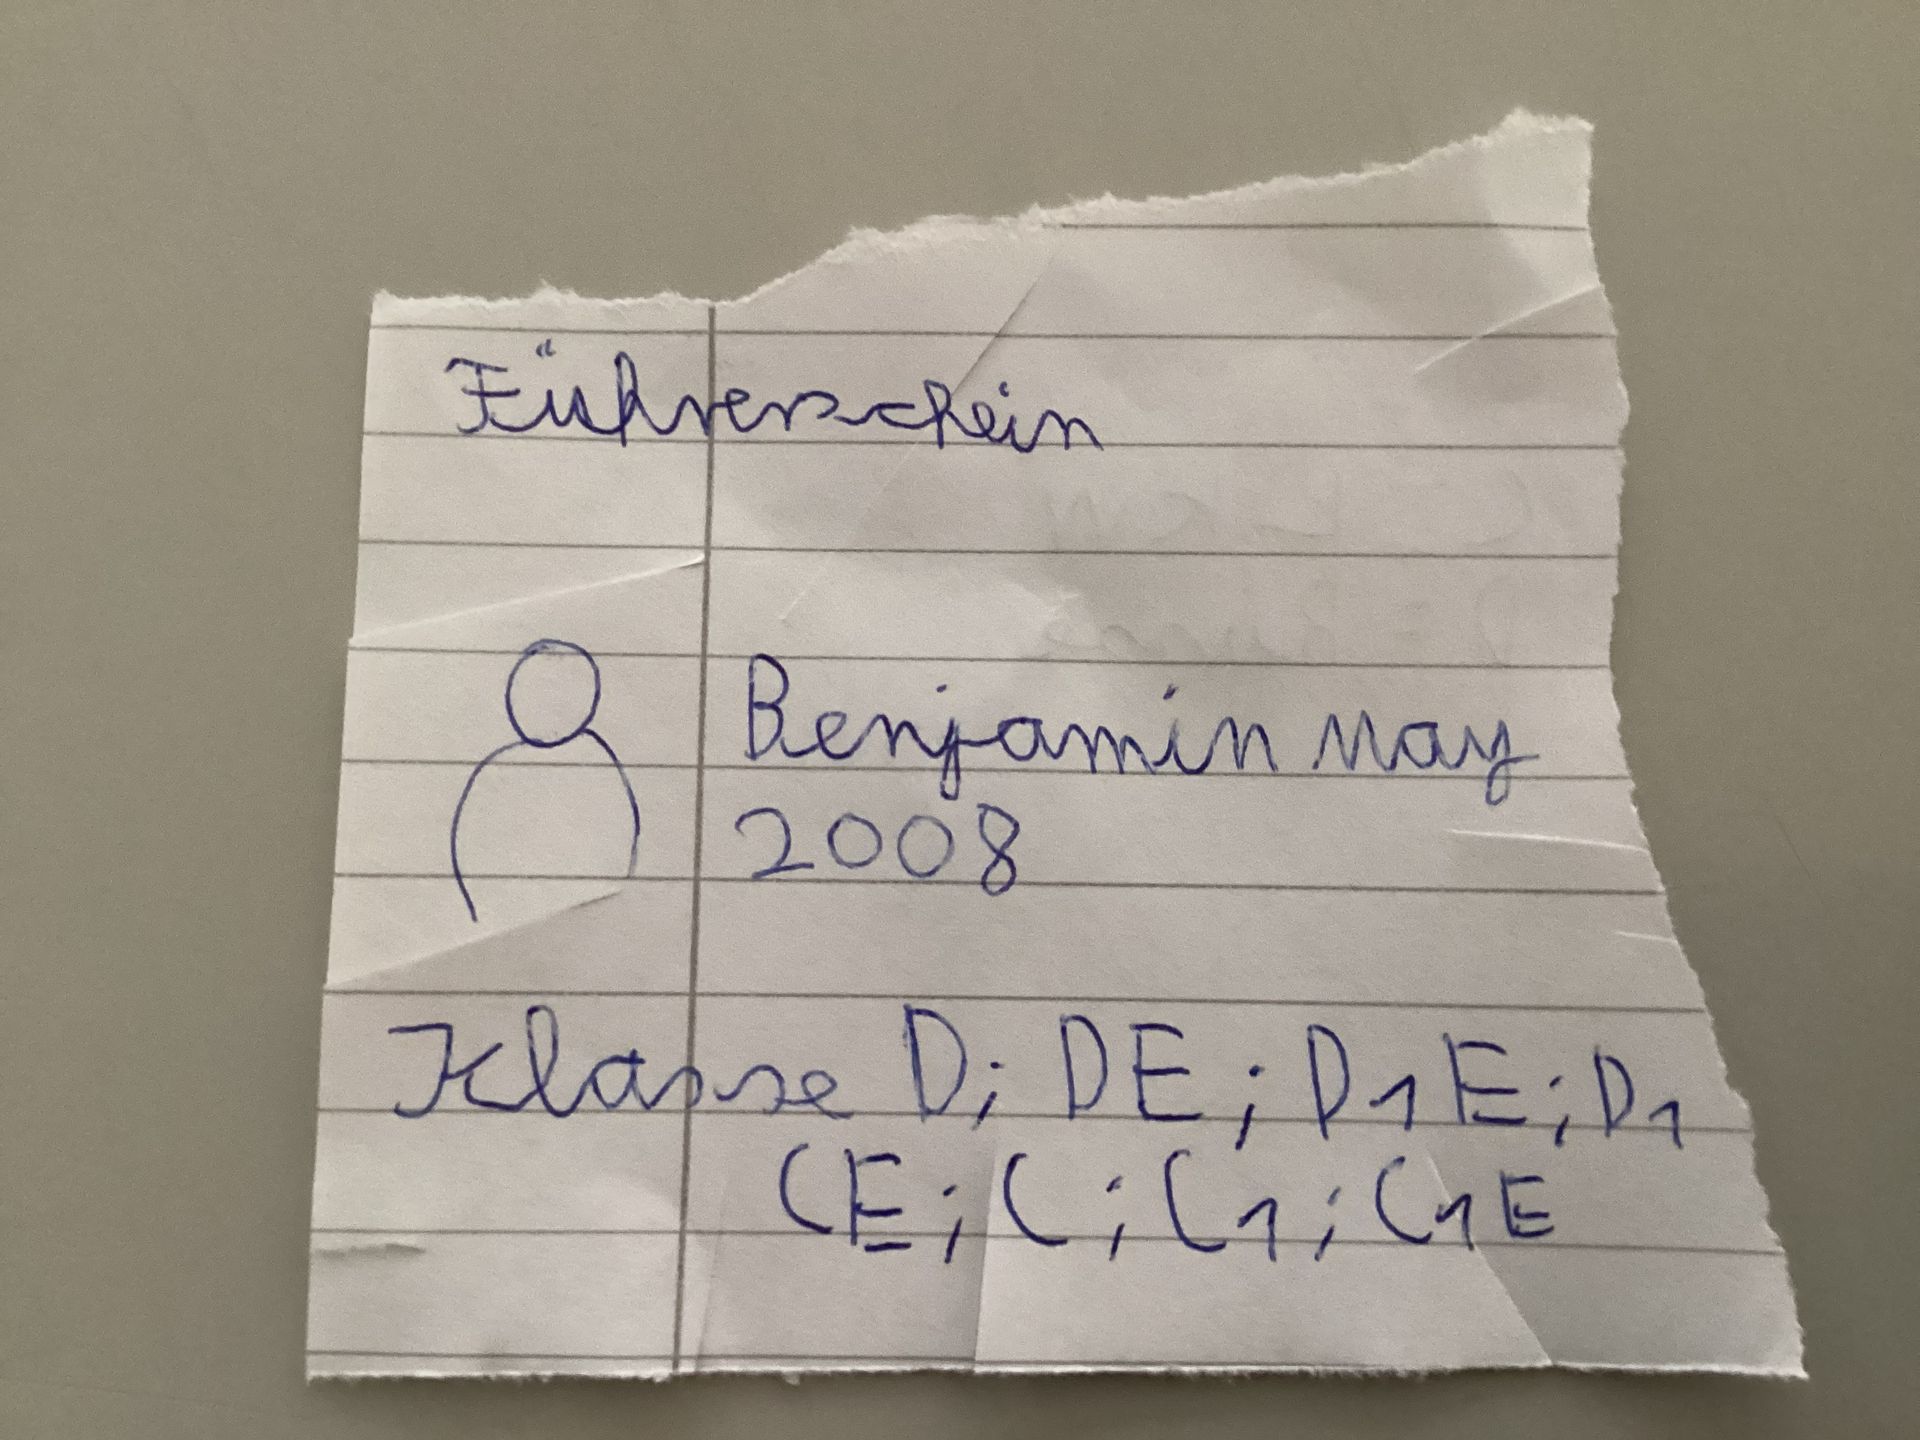 Führerschein
Benjamin May
2008
Klasse D; DE; D1E; D1
CE; C; C1; C1E